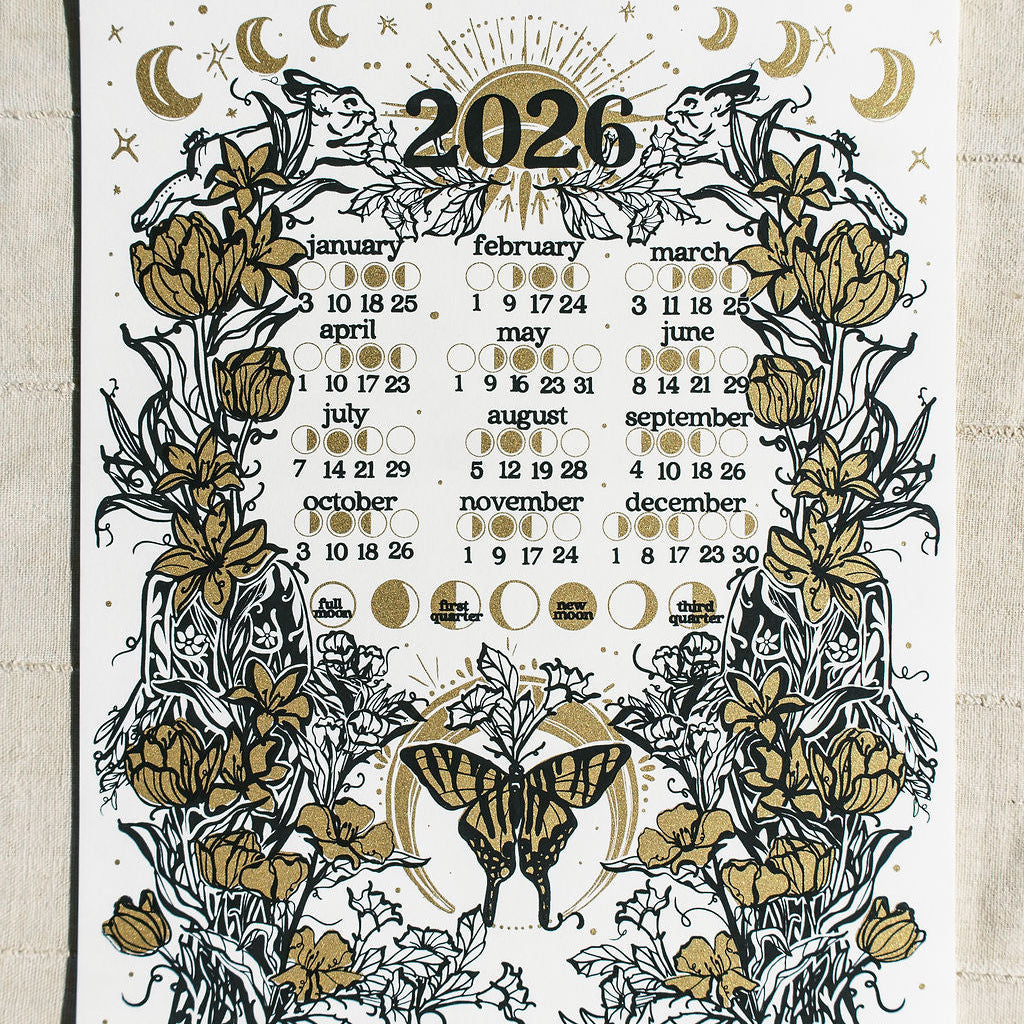 2026
january february march
3 10 18 25 1 9 17 24 3 11 18 25
april may june
1 10 17 23 1 9 16 23 31 8 14 21 29
july august september
7 14 21 29 5 12 19 28 4 10 18 26
october november december
3 10 18 26 1 9 17 24 1 8 17 23 30
full moon first quarter new moon third quarter